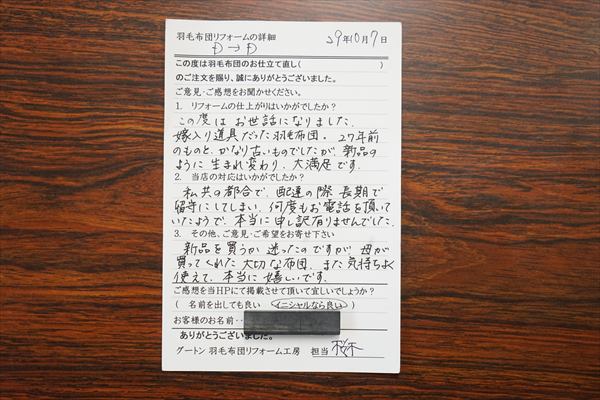 羽毛布団リフォームの詳細
29年10月7日
D→D
この度は羽毛布団のお仕立て直し( )
のご注文を賜り、誠にありがとうございました。
ご意見・ご感想をお聞かせください。
1. リフォームの仕上がりはいかがでしたか?
この度は お世話になりました。
嫁入り道具だった羽毛布団。27年前
のものと、かなり古いものでしたが 新品の
ように 生まれ変わり、大満足です。
2. 当店の対応はいかがでしたか?
私共の都合で、配達の際 長期で
留守にしてしまい、何度もお電話を頂いて
いたようで、本当に 申し訳有りませんでした。
3. その他、ご意見・ご希望をお寄せ下さい
新品を買うか 迷ったのですが 母が
買ってくれた 大切な布団、また 気持ちよく
使えて、本当に 嬉しいです。
ご感想を当HPにて掲載させて頂いて宜しいでしょうか?
( 名前を出しても良い イニシャルなら良い )
お客様のお名前・・
ありがとうございました。
グートン 羽毛布団リフォーム工房 担当